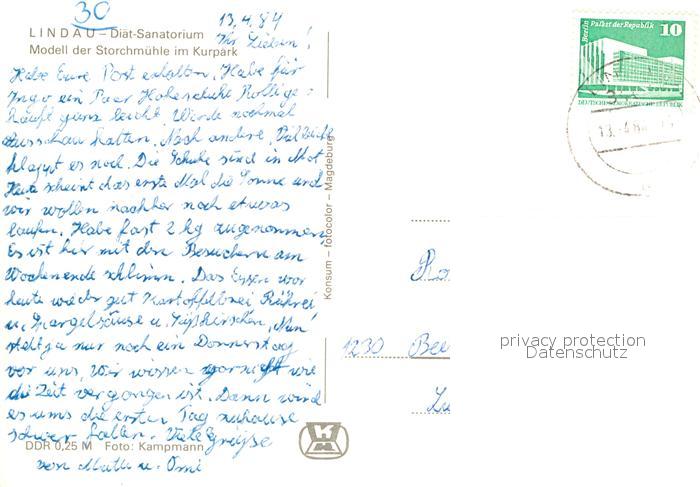 30
13.4.84
LINDAU – Diät-Sanatorium
Modell der Storchmühle im Kurpark
Ihr Lieben!
Habe Eure Post erhalten. Habe für
Ingo ein Paar
ganz leicht. Werde nochmal
Ausschau halten. Nach andere. Vielleicht
klappt es noch. Die Schuhe sind in
Heute scheint das erste Mal die Sonne und
wir wollen nachher noch etwas
laufen. Habe fast 2 kg zugenommen
Es ist hier mit den Besuchern am
Wochenende schlimm. Das Essen war
heute wieder gut Kartoffelbrei Rührei
u. u. Süßkirschen. Nun
steht ja nur noch ein Donnerstag
vor uns. Wir wissen garnicht wie
die Zeit vergangen ist. Dann wird
es uns die ersten Tag zuhause
schwer fallen. Viele Grüße
von Mutti u. Omi
DDR 0,25 M Foto: Kampmann
Konsum – fotocolor – Magdeburg
Berlin Palast der Republik
10
DEUTSCHE DEMOKRATISCHE REPUBLIK
1230 Bee
privacy protection
Datenschutz